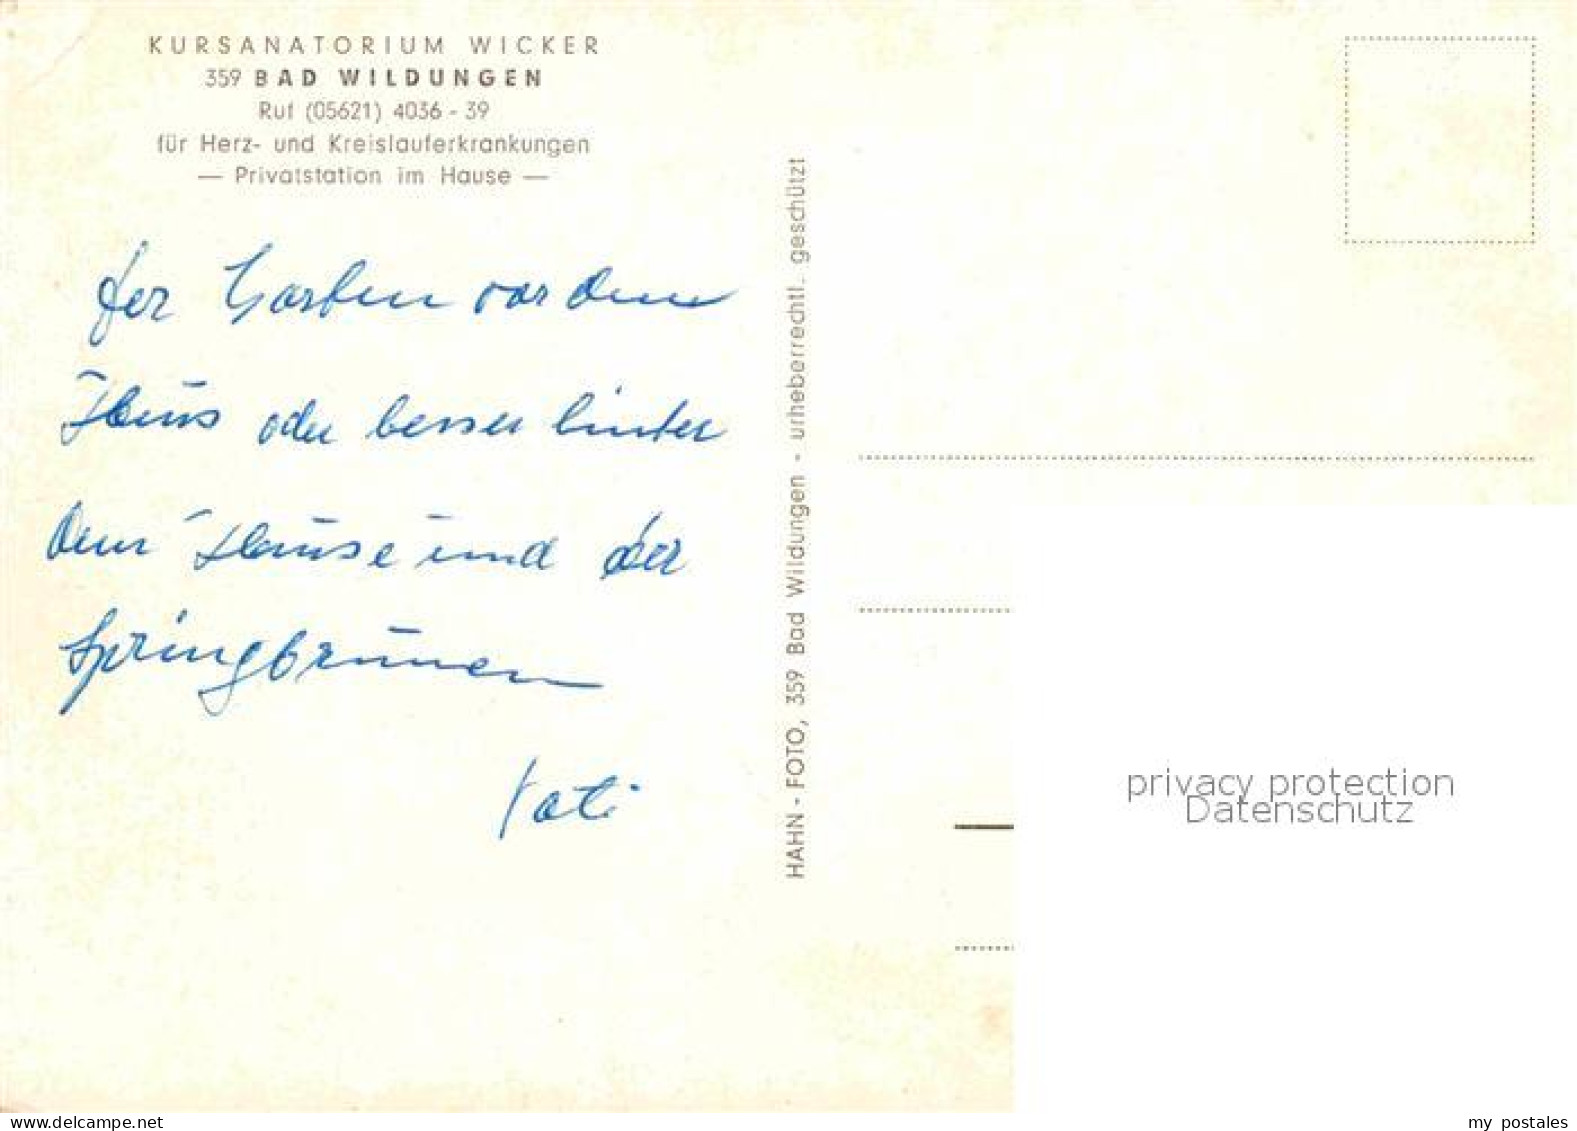 KURSANATORIUM WICKER
359 BAD WILDUNGEN
Ruf (05621) 4036 - 39
für Herz- und Kreislauferkrankungen
— Privatstation im Hause —
der Garten vor dem
Haus oder besser hinter
dem Hause und der
Springbrunnen
Vati
HAHN - FOTO, 359 Bad Wildungen - urheberrechtl. geschützt
privacy protection
Datenschutz
delcampe.net
my_postales